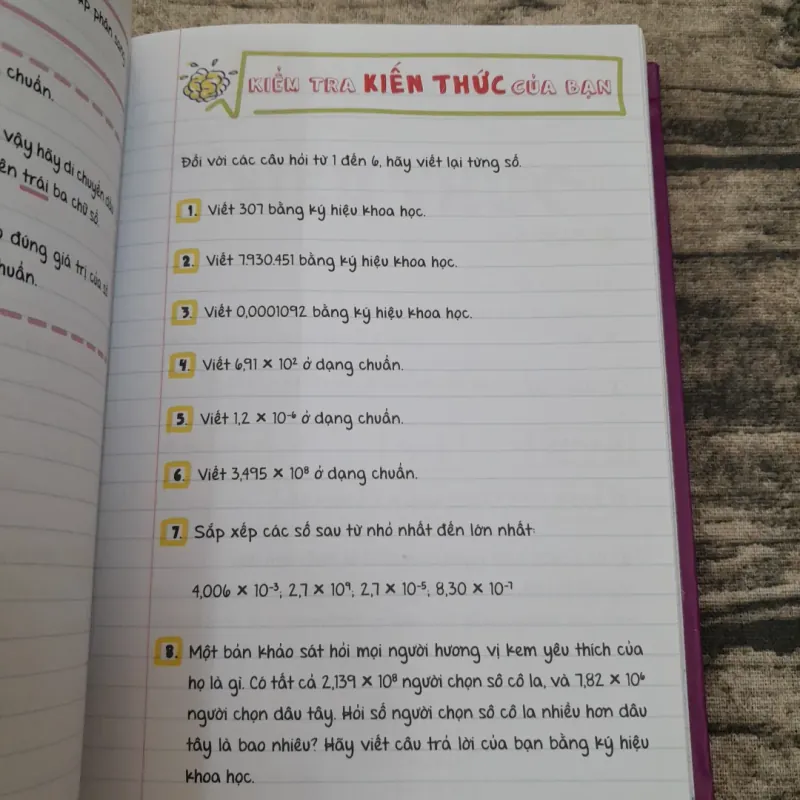 chuẩn.
vậy hãy di chuyển dấu
trái ba chữ số.
đúng giá trị của số
KIỂM TRA KIẾN THỨC CỦA BẠN
Đối với các câu hỏi từ 1 đến 6, hãy viết lại từng số.
1. Viết 307 bằng ký hiệu khoa học.
2. Viết 7.930.451 bằng ký hiệu khoa học.
3. Viết 0,0001092 bằng ký hiệu khoa học.
4. Viết 6,91 × 10² ở dạng chuẩn.
5. Viết 1,2 × 10⁻⁶ ở dạng chuẩn.
6. Viết 3,495 × 10⁸ ở dạng chuẩn.
7. Sắp xếp các số sau từ nhỏ nhất đến lớn nhất:
4,006 × 10⁻³; 2,7 × 10⁹; 2,7 × 10⁻⁵; 8,30 × 10⁻⁷
8. Một bản khảo sát hỏi mọi người hương vị kem yêu thích của
họ là gì. Có tất cả 2,139 × 10⁸ người chọn sô cô la, và 7,82 × 10⁶
người chọn dâu tây. Hỏi số người chọn sô cô la nhiều hơn dâu
tây là bao nhiêu? Hãy viết câu trả lời của bạn bằng ký hiệu
khoa học.